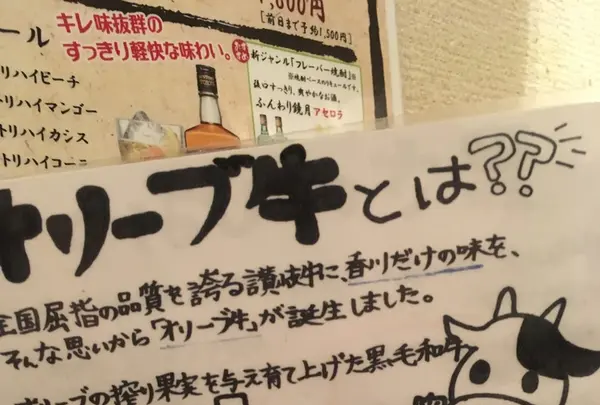 ,800円
[前日まで予約1,500円]
キレ味抜群の
すっきり軽快な味わい。
ール
トリハイピーチ
トリハイマンゴー
トリハイカシス
トリハイコーニ
新ジャンル「フレーバー焼酎」※
※焼酎ベースのリキュールです。
後口すっきり、爽やかなお酒。
ふんわり鏡月 アセロラ
オリーブ牛とは??
全国屈指の品質を誇る讃岐牛に、香川だけの味を、
そんな思いから「オリーブ牛」が誕生しました。
オリーブの搾り果実を与え育て上げた黒毛和牛